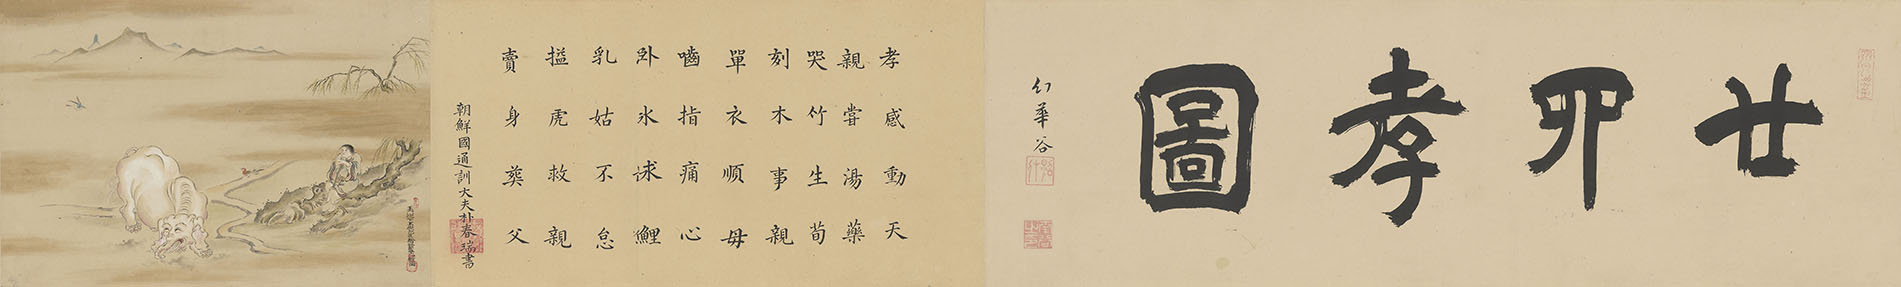 廿四孝圖
幻華谷
孝感動天
親嘗湯藥
哭竹生荀
刻木事親
單衣順母
嚙指痛心
卧氷求鯉
乳姑不怠
搤虎救親
賣身葬父
朝鮮國通訓大夫朴春瑞書